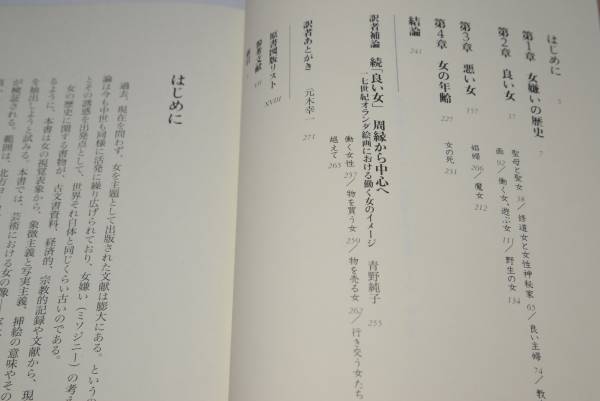 はじめに 5
第1章 女嫌いの歴史 7
第2章 良い女 37
聖母と聖女 38/修道女と女性神秘家 63/良い主婦 74/教
画 92/働く女、遊ぶ女 111/野生の女 134
第3章 悪い女 157
娼婦 206/魔女 212
第4章 女の年齢 225
女の死 231
結論 241
訳者補論 続「良い女」 周縁から中心へ
一七世紀オランダ絵画における働く女のイメージ 青野純子 255
働く女性 257/物を買う女 259/物を売る女 262/行き交う女たち
越えて 265
訳者あとがき 元木幸一 271
原書図版リスト XVIII
参考文献 VII
索引 I
はじめに
過去、現在を問わず、女を主題として出版された文献は膨大にある。というの
論は今も中世も同様に活発に繰り広げられており、女嫌い（ミソジニー）の考え
とその誘惑を出発点として、世界それ自体と同じくらい古いのである。
女の歴史に関する書物が、古文書資料、経済的、宗教的記録や文献から、現
るように、本書は女の視覚表象から、象徴主義と写実主義、挿絵の意味やその
を抽出しようと試みる。本書では、芸術における女の像
が検証される。範囲は、北方ヨ